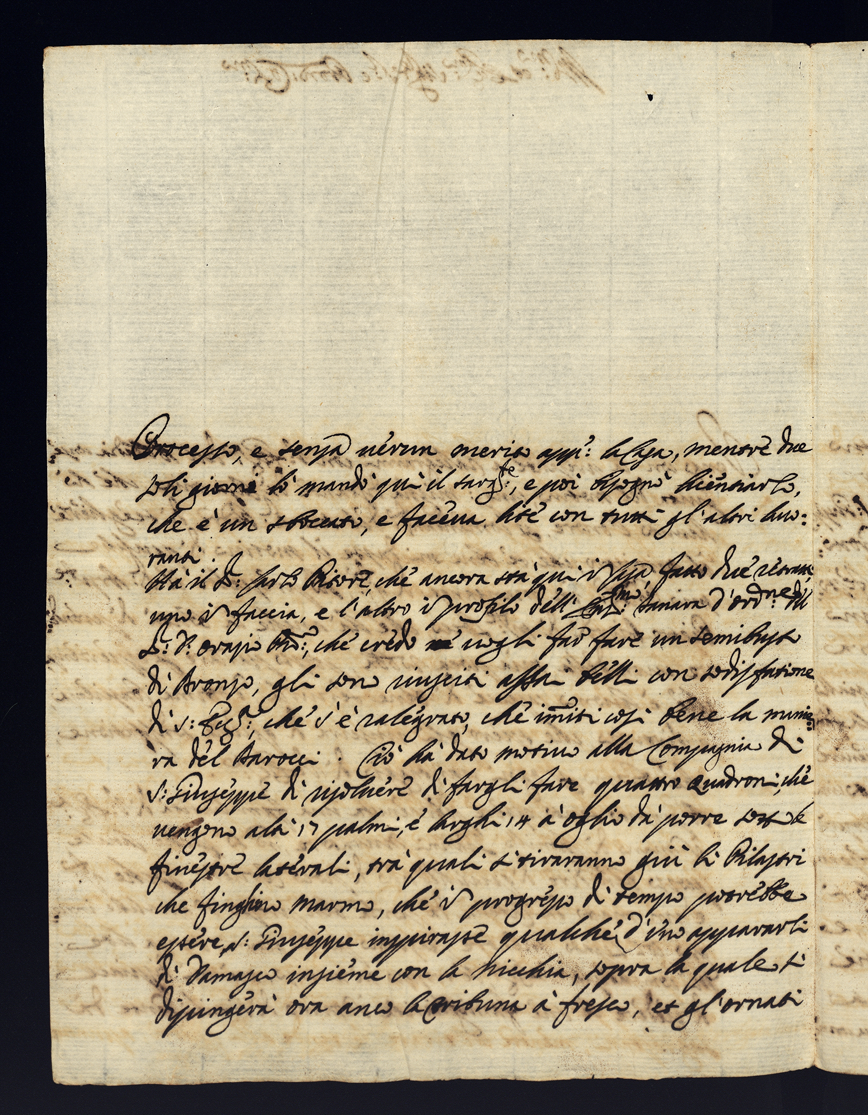 Processo, e senza uerun merito app.º la Casa, mentre due
soli giorni lo mandò qui il, e poi bisognò licentiarlo,
che è un sboccato, e faceua lite con tutti gl'altri lauo:
ranti.
Hà il S.r Carlo Pitore, che ancora stà qui fatto due
uno ī faccia, e l'altro ī profilo dell' Tanara d'ord.ne del
S.r D. Orazio, che credo uogli far fare un semibusto
di Bronzo, gli sono riusciti assai belli con sodisfatione
di S:, che s'è ralegrato, che imiti così bene la manie
ra del Barocci. Ciò hà dato motiuo alla Compagnia di
S: Giuseppe di risoluere di fargli fare quattro Quadroni, che
uengono alti 17 palmi, e larghi 14 à oglio da porre sotto le
finestre laterali, trà quali si tiraranno giù li Pilastri
che finghino marmo, che ī progresso di tempo potrebbe
essere, S: Giuseppe inspirasse qualche d'uno appararli
di Damasco insieme con la nicchia, sopra la quale si
dipingerà ora anco la tribuna à fresco, et gl'ornati